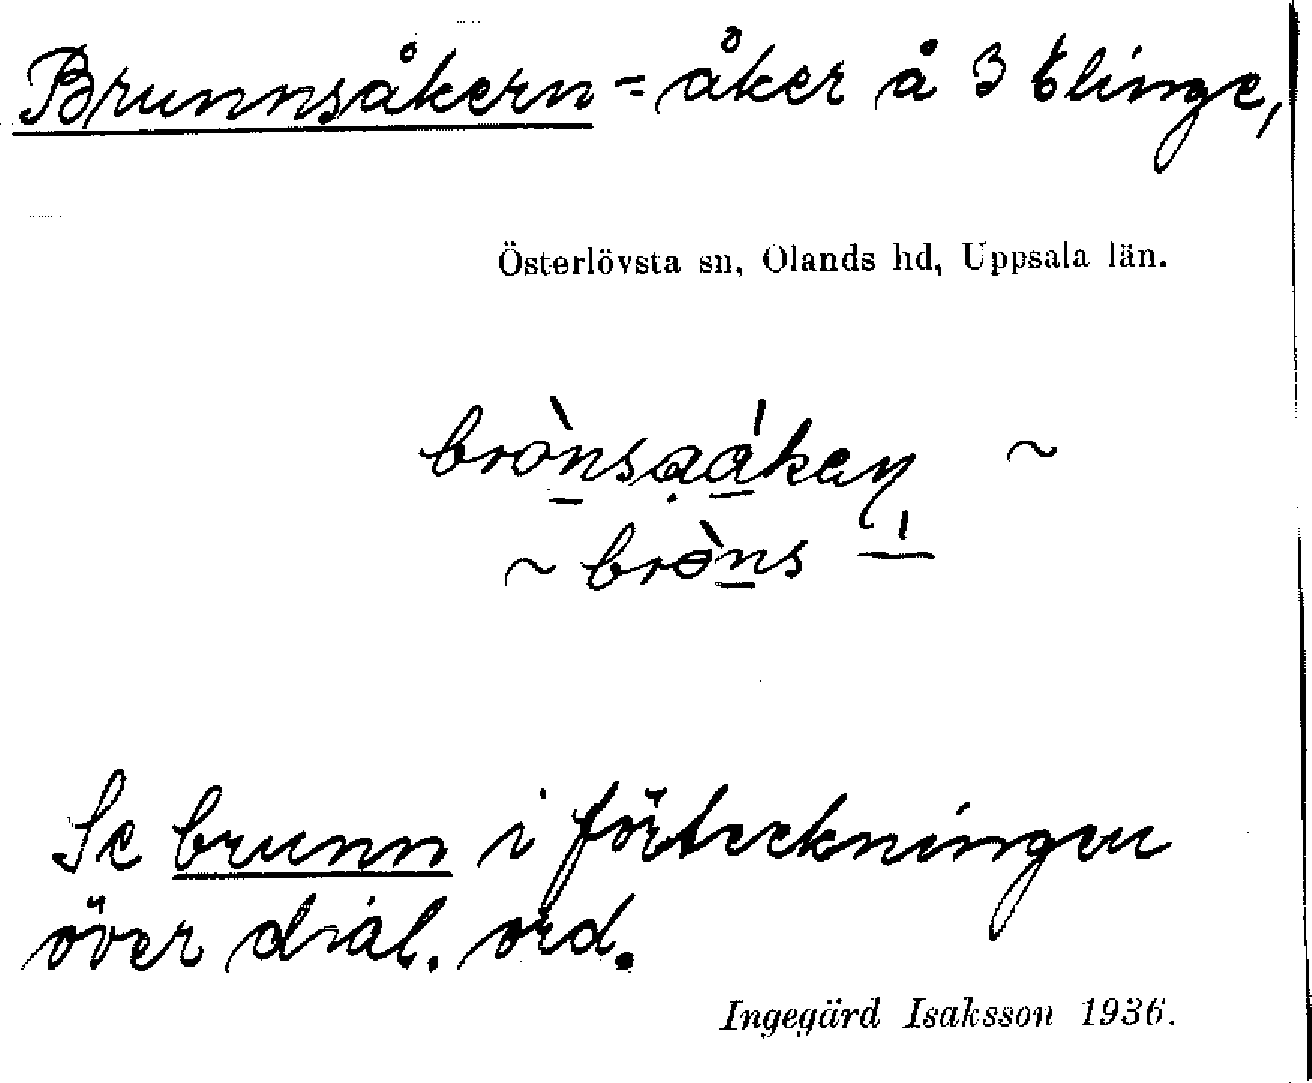 Brunnsåkern = åker å 3 Elinge,
Österlövsta sn, Olands hd, Uppsala län.
~
~
Se brunn i förteckningen
över dial. ord.
Ingegärd Isaksson 1936.